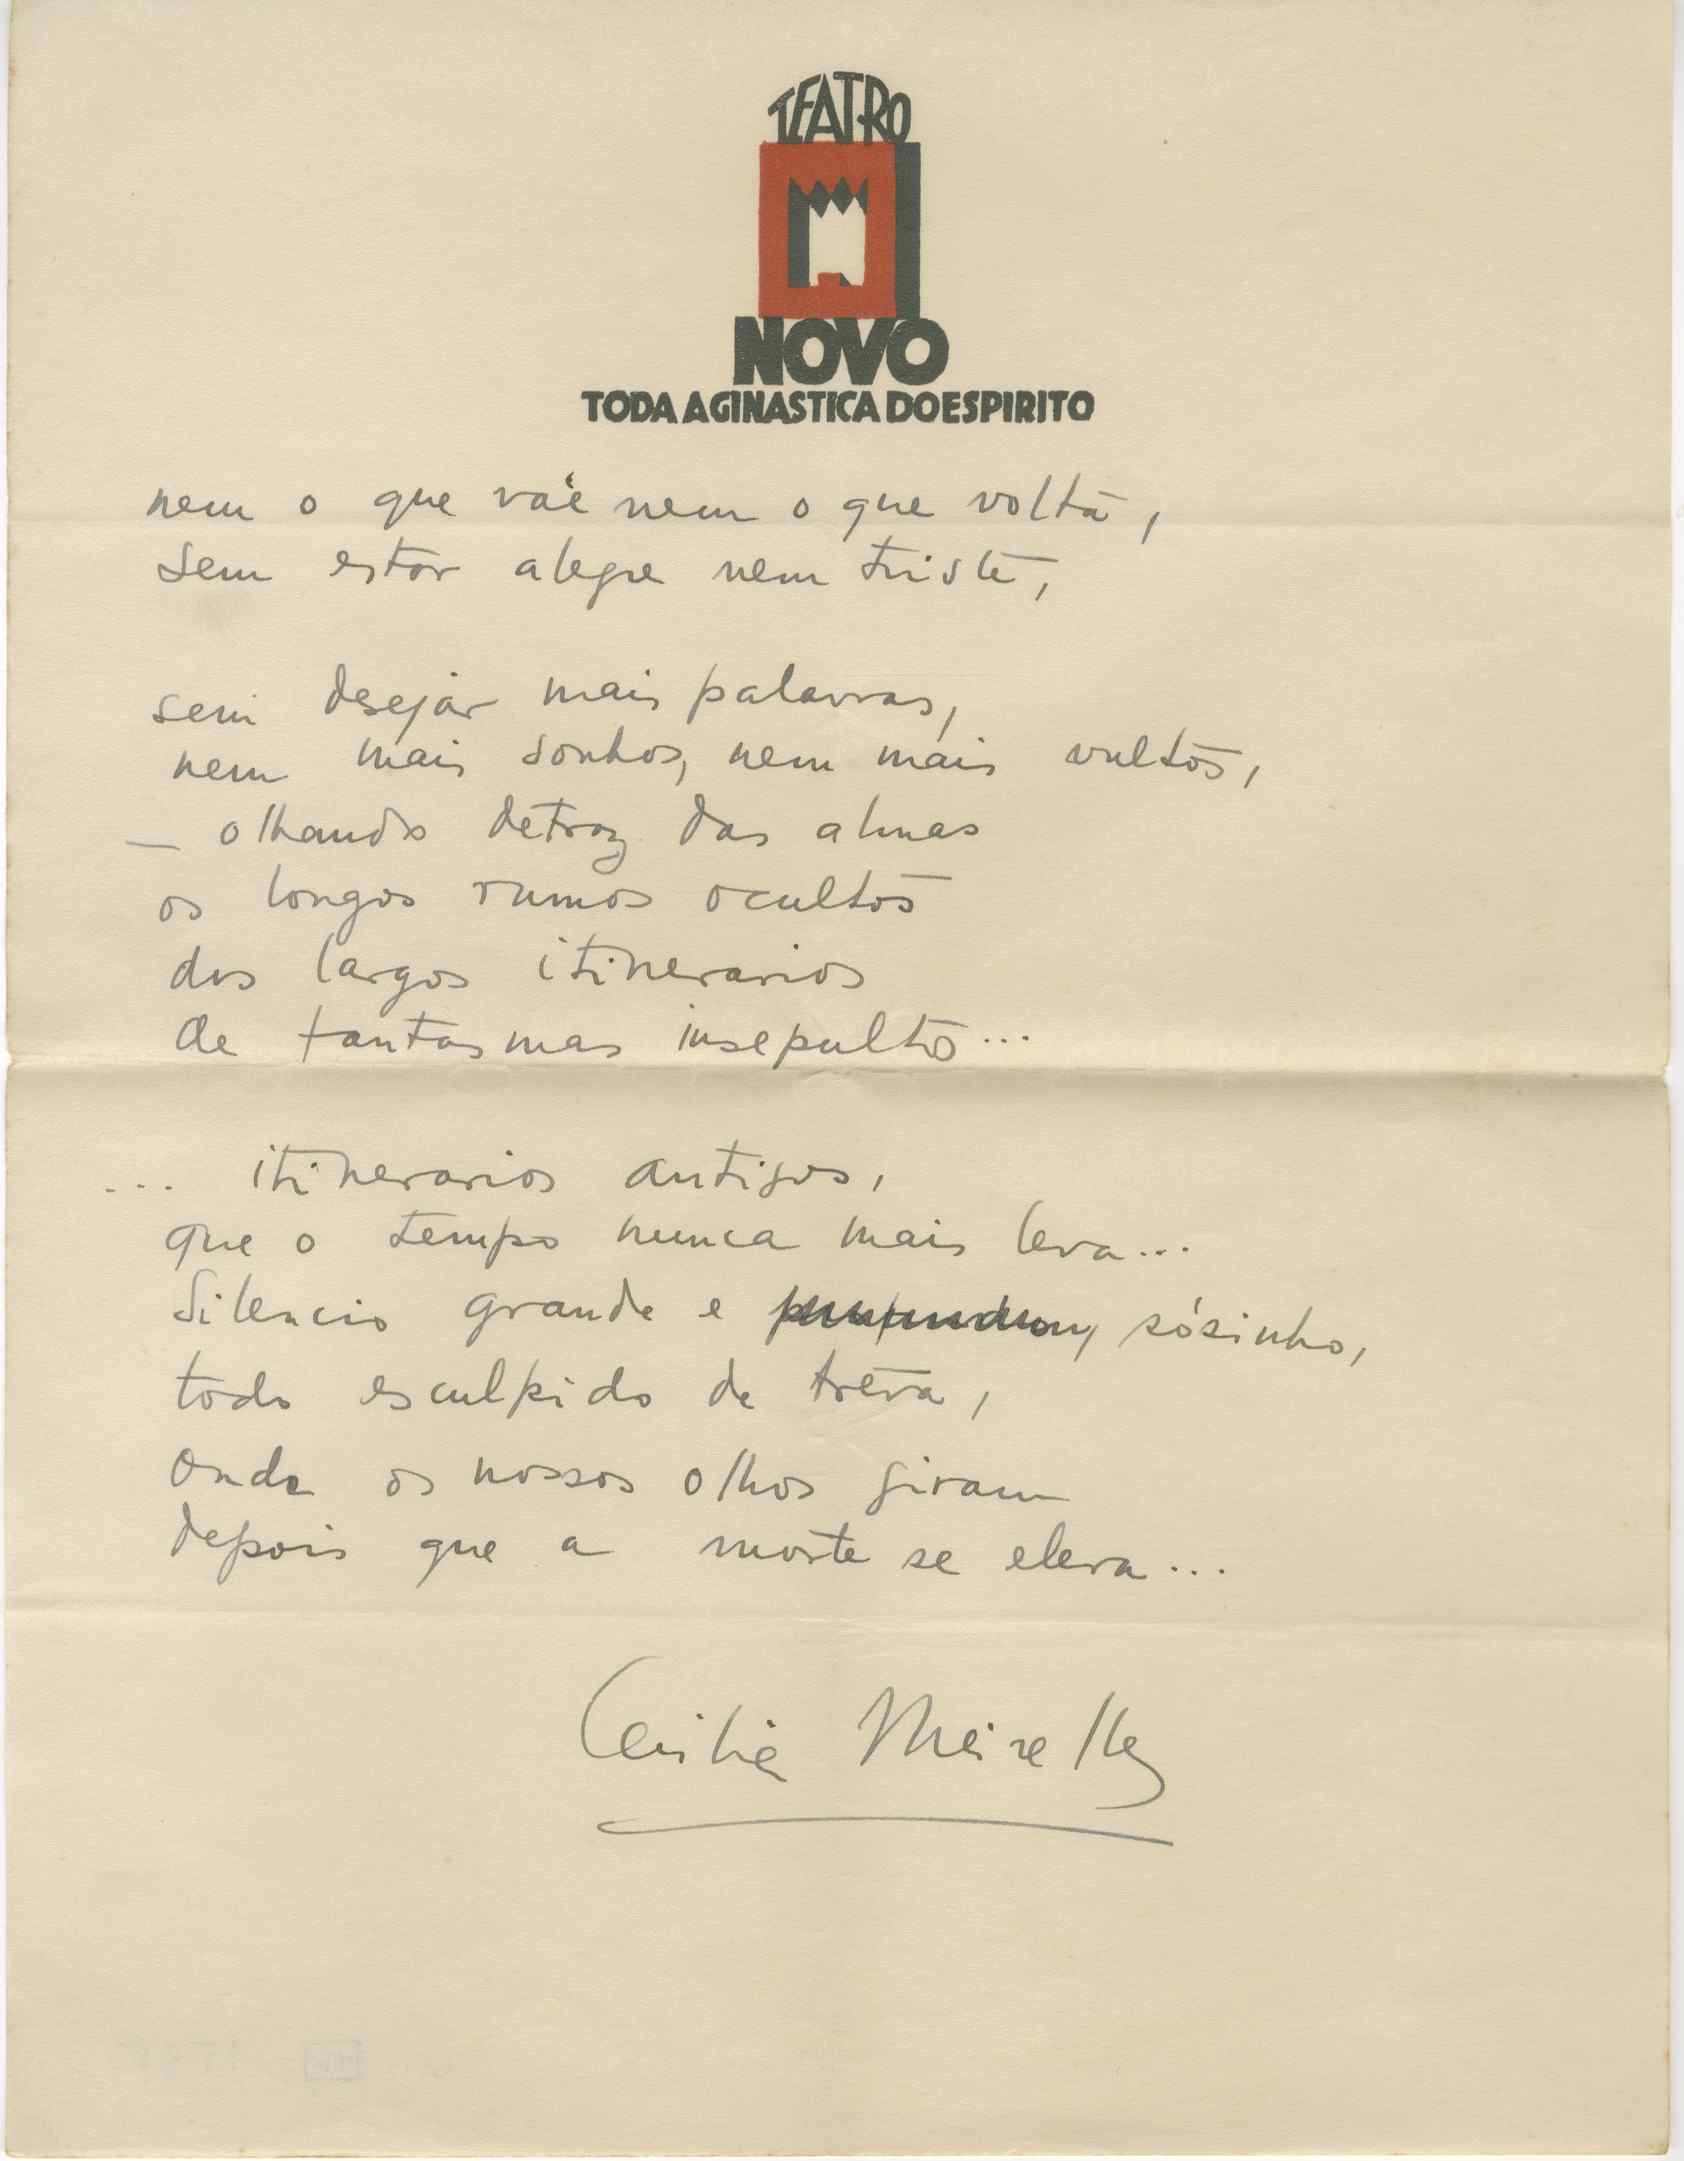 TEATRO
NOVO
TODA A GINASTICA DO ESPIRITO
nem o que vae nem o que volta,
sem estar alegre nem triste,
sem desejar mais palavras,
nem mais sonhos, nem mais vultos,
— olhando detraz das almas
os longos rumos ocultos
dos largos itinerarios
de fantasmas insepultos...
... itinerarios antigos,
que o tempo nunca mais leva...
Silencio grande e sósinho,
todo esculpido de treva,
onde os nossos olhos giram
depois que a morte se eleva...
Cecilia Meirelles